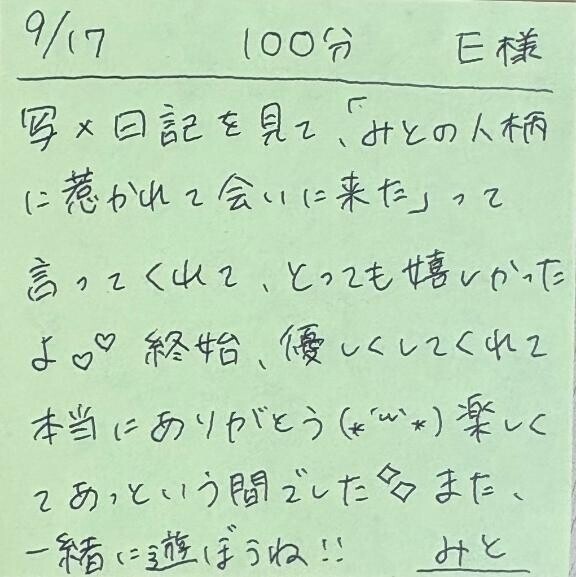 9/17 100分 E様
写×日記を見て、「みとの人柄
に惹かれて会いに来た」って
言ってくれて、とっても嬉しかった
よ♡♡ 終始、優しくしてくれて
本当にありがとう(*´ω`*)楽しく
てあっという間でした◇◇ また、
一緒に遊ぼうね!! みと